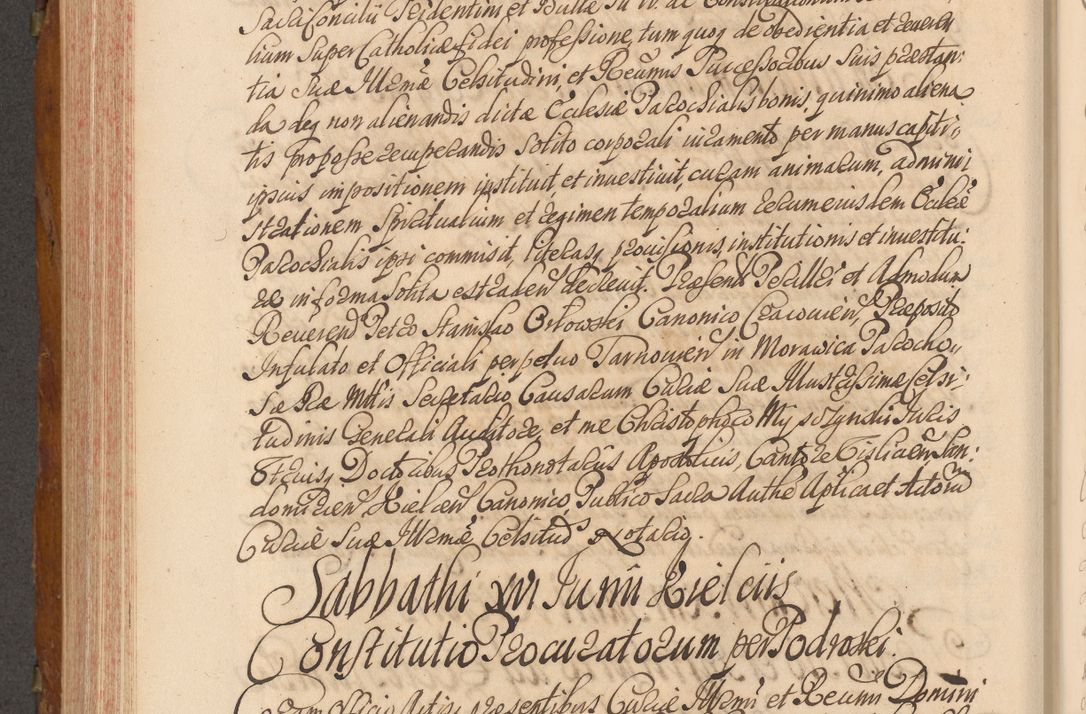 Sacri Concilii Tridentini et Bullæ
lium super Catholicæ fidei professione, tum quoq de obedientia et reveren
tia Suæ Illmæ Celsitudini, et Ejus Successoribus suis præstan:
da deq non alienandis dictæ Ecclesiæ Parochialis bonis, quinimo aliena
tis pro posse recuperandis solito corporali iuramento per manus capiti,,
ipsius impositionem instituit et investivit, curam animarum, admini
strationem Spiritualium et regimen temporalium rerum eiusdem Eccliæ
Parochialis ipsi commisit, literasq provisionis, institutionis et investitu:
ræ in forma solita extraden decrevit. Præsent Perillri et Admodum
Reverend Petro Stanislao Orłowski Canonico Cracovien, Præposito
Infulato et Officiali perpetuo Tarnovien in Morawica Parocho,,
Sæ Ræ Mttis Secretario Causarum Curiæ Suæ Illustrissimæ Celsi:
tudinis Generali Auditore, et me Christophoro Myszynski Iuris
Utriusq Doctoribus Prothonotariis Apostolicis, Cantore Tislicien San:
domirien Kielcen Canonico, Publico Sacra Authe Aplica et Actoru
Curiæ Suæ Illmæ Celsitud Notariq.
Sabbathi XVI Junii Kielciis
Constitutio Procuratorum per Podroski.
Coram Officio Actisq præsentibus Curiæ Illmi et Revmi Domini